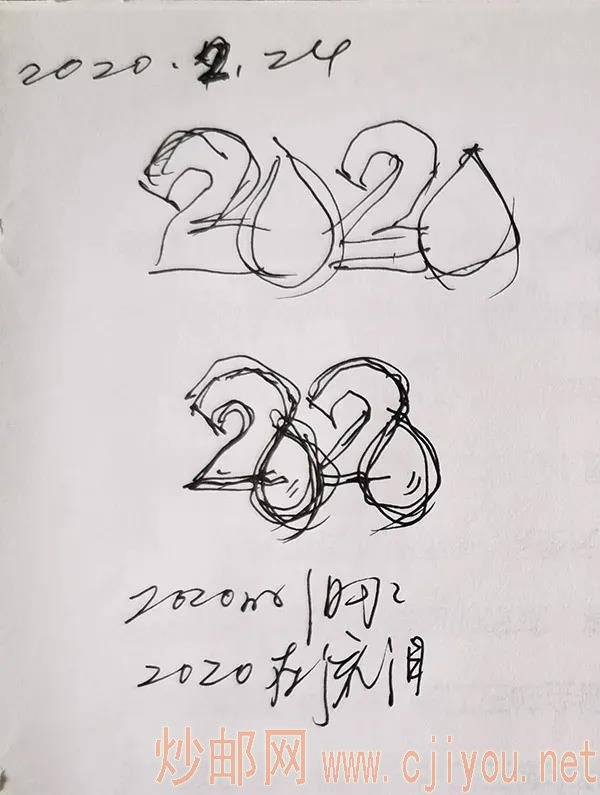 2020.2.24
2020
2020
2020
2020在流泪
炒邮网 www.cjiyou.net